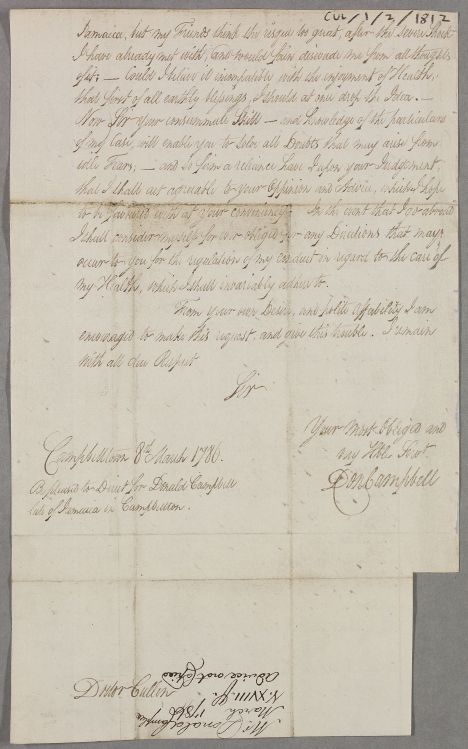 CUL/1/2/1812
Jamaica, but my Friends think the risque too great, after the severe Shock
I have already met with, and would fain disuade me from all thoughts
of it; — Could I believe it incompatible with the enjoyment of Health,
that first of all earthly blessings, I should at once drop the Idea. —
Now Sir your consummate Skill — and knowledge of the particulars
of my Case, will enable you to solve all Doubts that may arise from
idle Fears; — and so firm a reliance have I upon your Judgement,
that I shall act agreeable to your Oppinion and Advice, which I hope
to be favoured with at your conveniency. In the event that I go abroad
I shall consider myself for ever obliged for any Directions that may
occur to you for the regulation of my conduct in regard to the care of
my Health, which I shall invariably adhere to.
From your own Desire, and polite affability I am
encouraged to make this request, and give this trouble. I remain
with all due Respect
Sir
Your most obliged and
very Hble Servt.
Don Campbell
Campbelltown 8th March 1786.
Be pleased to Direct for Donald Campbell
late of Jamaica in Campbelton.
Doctor Cullen
Mr Donald Campbell
March 1786
V. XVIII. p.